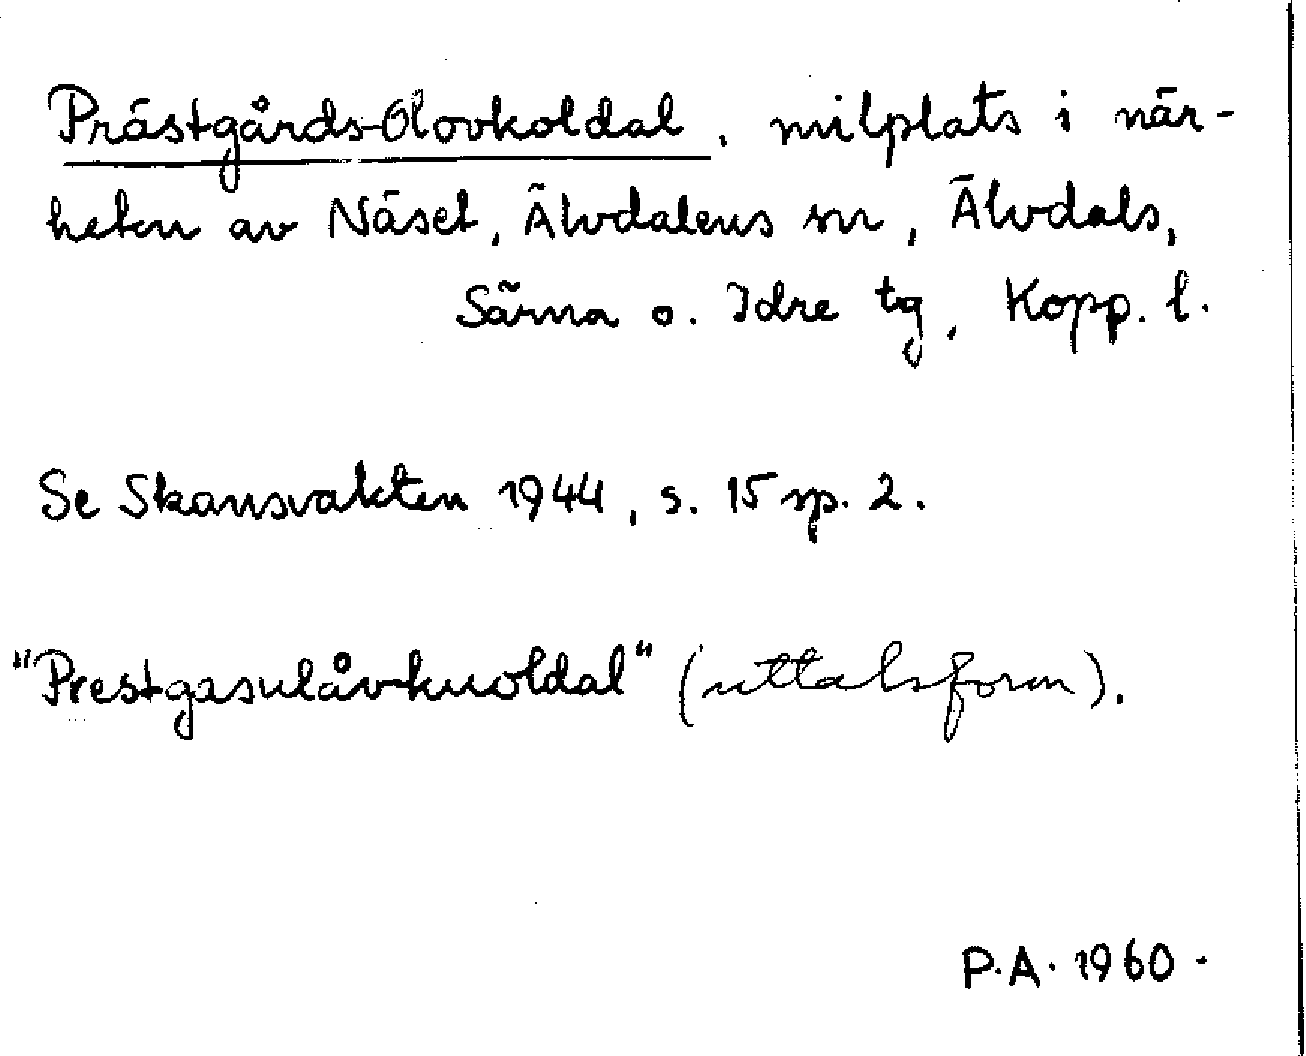 Prästgårds-Olovkoldal, milplats i när-
heten av Näset, Älvdalens sn, Älvdals,
Särna o. Idre tg, Kopp. l.
Se Skansvakten 1944, s. 15 sp. 2.
"Prestgasulåvkuoldal" (uttalsform).
P.A. 1960.